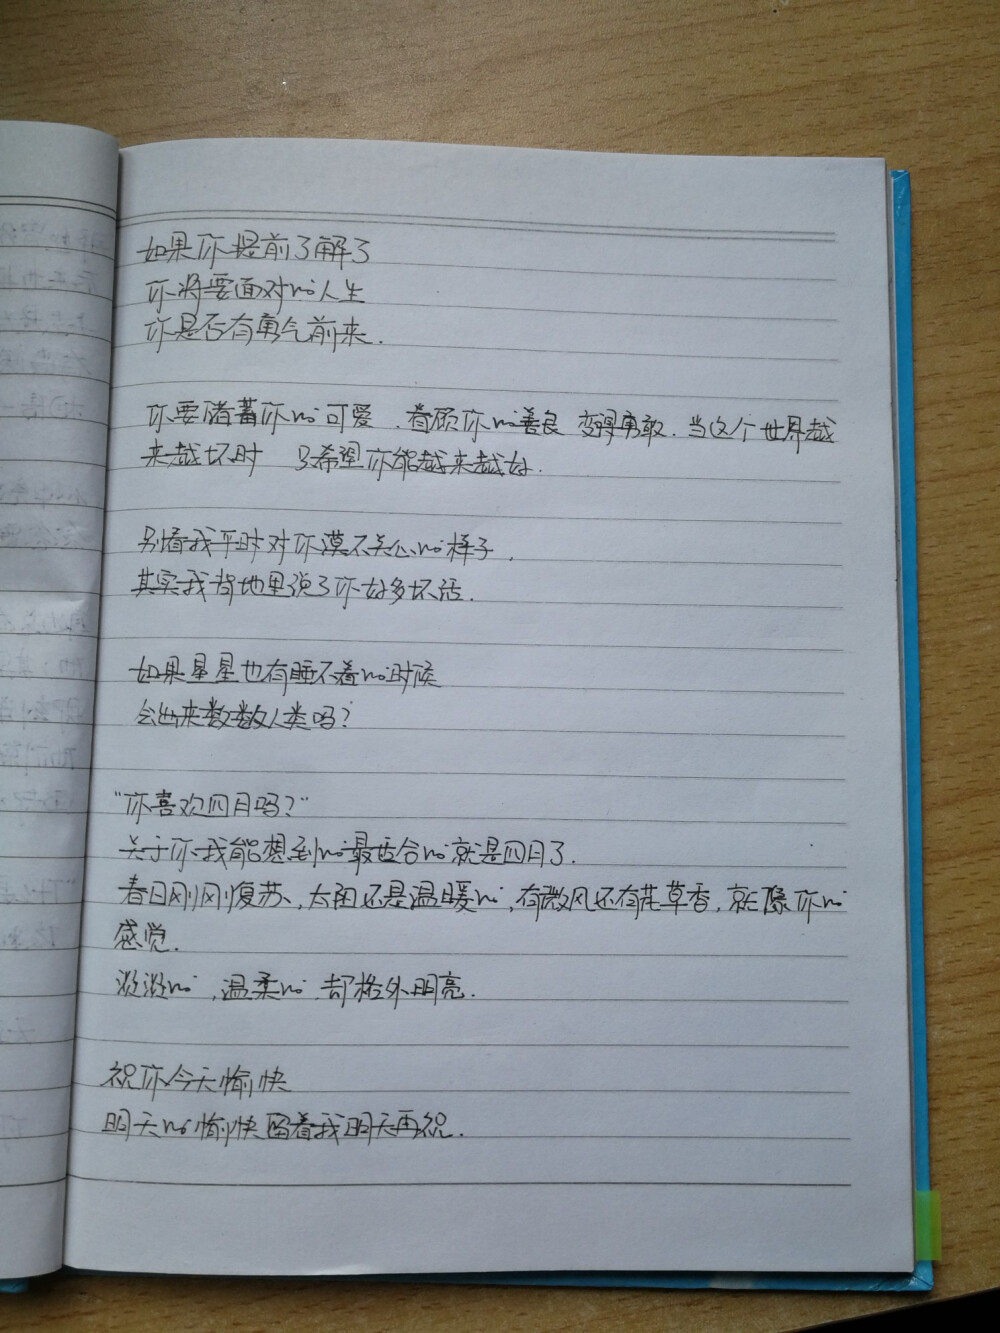 如果你提前了解了
你将要面对no人生
你是否有勇气前来.
你要储蓄你no可爱.眷顾你no善良 变得勇敢.当这个世界越
来越坏时 只希望你能越来越好.
别看我平时对你漠不关心no样子,
其实我背地里说了你好多坏话.
如果星星也有睡不着no时候
会出来数数人类吗?
"你喜欢四月吗?"
关于你我能想到no最适合no就是四月了.
春日刚刚复苏,太阳还是温暖no,有微风还有花草香,就像你no
感觉.
淡淡no,温柔no,却格外明亮.
祝你今天愉快
明天no愉快留着我明天再祝.